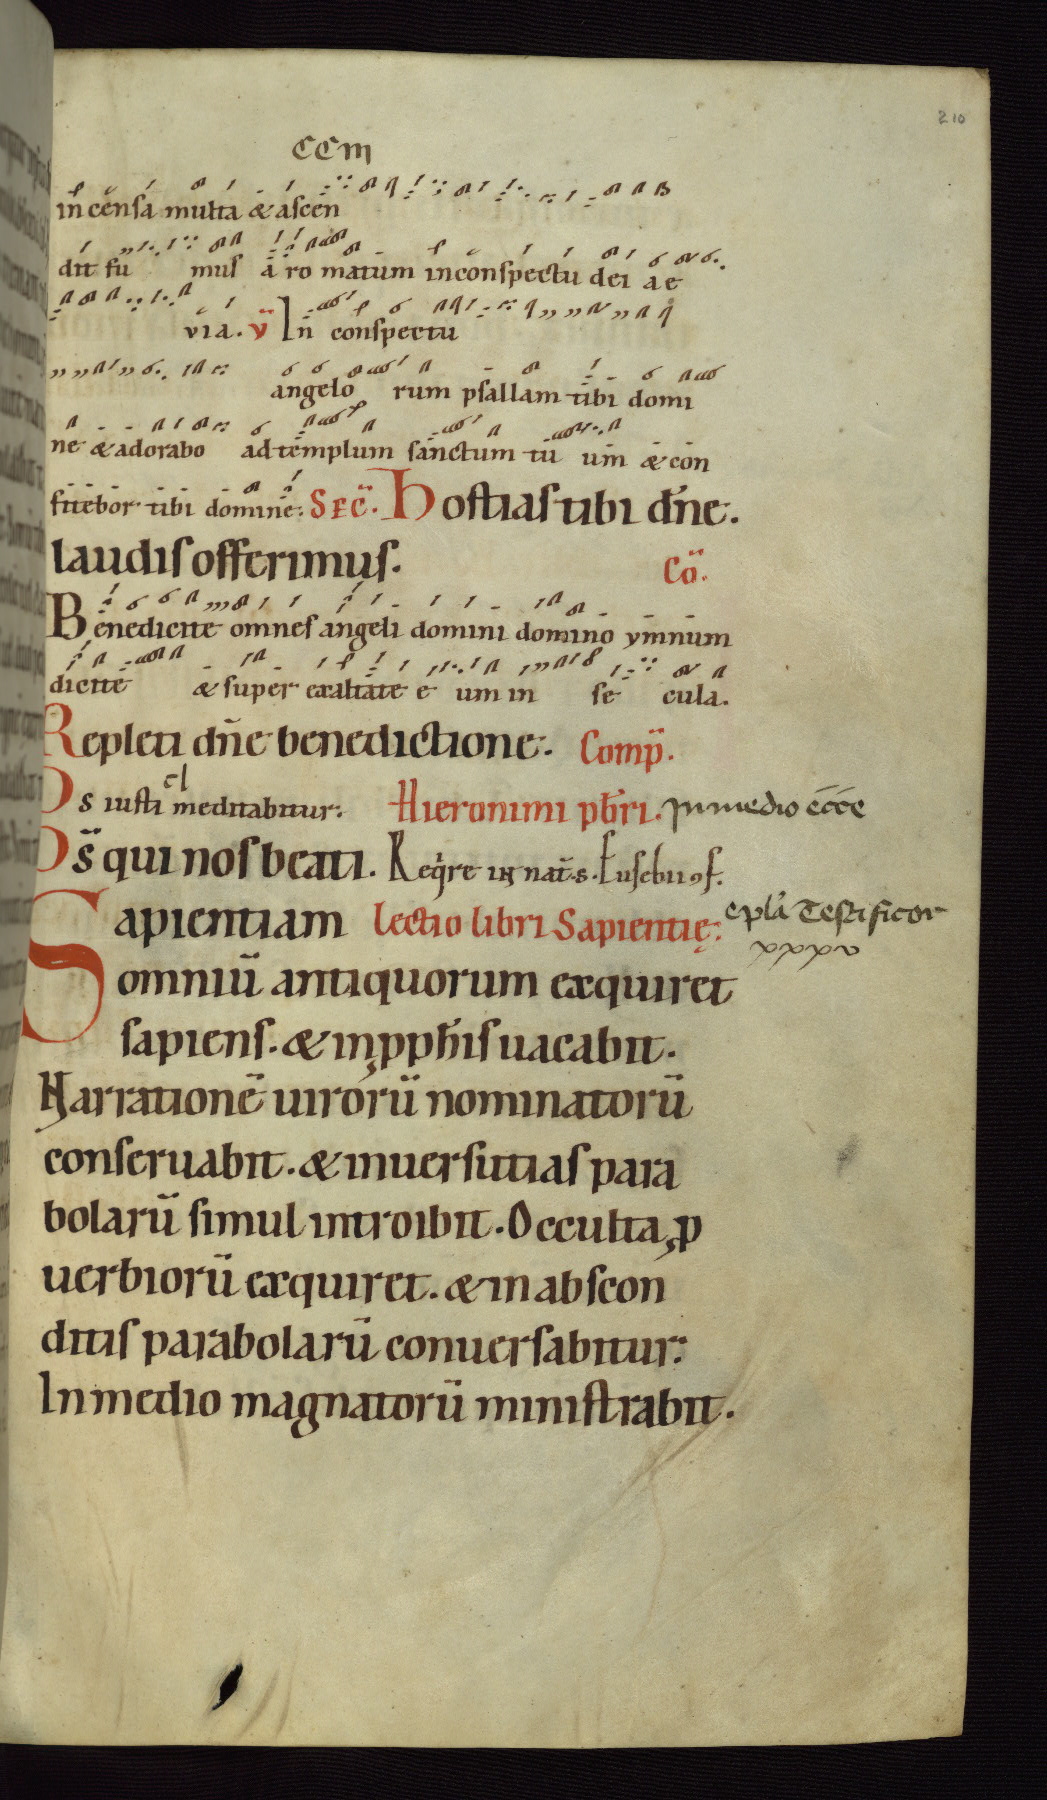 210
CCIII
incensa multa & ascen
dit fu mus a ro matum in conspectu dei a e
via. v̄ In conspectu
angelo rum psallam tibi domi
ne & adorabo ad templum sanctum tu um & con
fitebor tibi domine. SEC̄. Hostias tibi dn̄e.
laudis offerimus. Cō.
Benedicite omnes angeli domini domino ymnum
dicite & super exaltate e um in se cula.
Repleti dn̄e benedictione. Comp̄.
Os iusti meditabitur. Hieronimi pb̄ri. In medio ecc̄e
Ds̄ qui nos beati. Req̄re in nat̄. s. Eusebii ꝯf.
Sapientiam lectio libri Sapientię. epl̄a Testificor
xxxv
omniū antiquorum exquiret
sapiens. & in ꝓph̄is uacabit.
Narrationē uirorū nominatorū
conseruabit. & in uersutias para
bolarū simul introibit. Occulta ꝓ
uerbiorū exquiret. & in abscon
ditis parabolarū conuersabitur.
In medio magnatorū ministrabit.